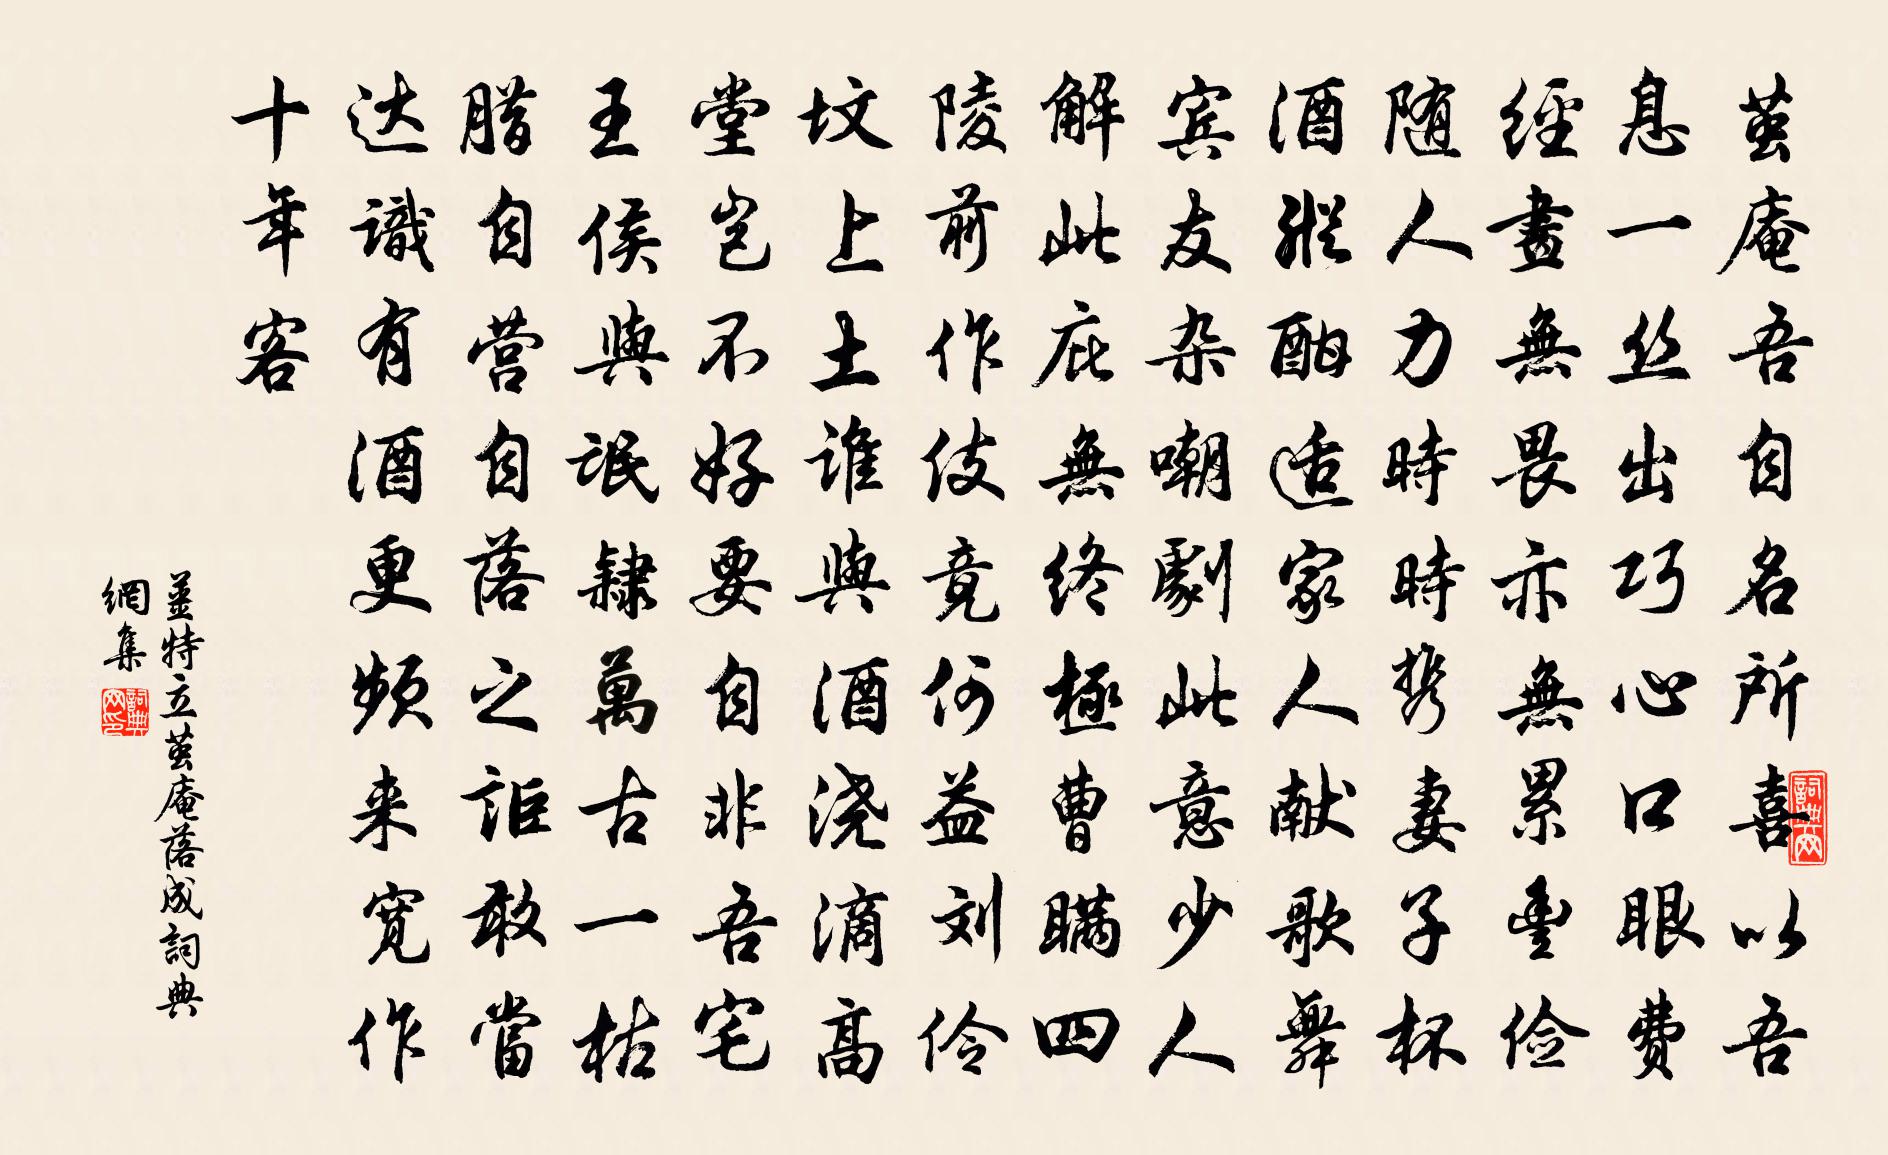 茧庵吾自名所喜以吾
息一丝出巧心口眼費
經畫無畏亦無累豊俭
随人力時時携妻子杯
酒縱酣适家人献歌舞
宾友杂嘲劇此意少人
解此庇無终極曹瞒四
陵前作伎竟何益刘伶
坟上土谁與酒浇滴高
堂岂不好要自非吾宅
王侯與氓隸萬古一枯
腊自营自落之詎敢當
达識有酒更频来寛作
十年客
薑特立茧庵落成詞典
網集
詞典网
詞典网印